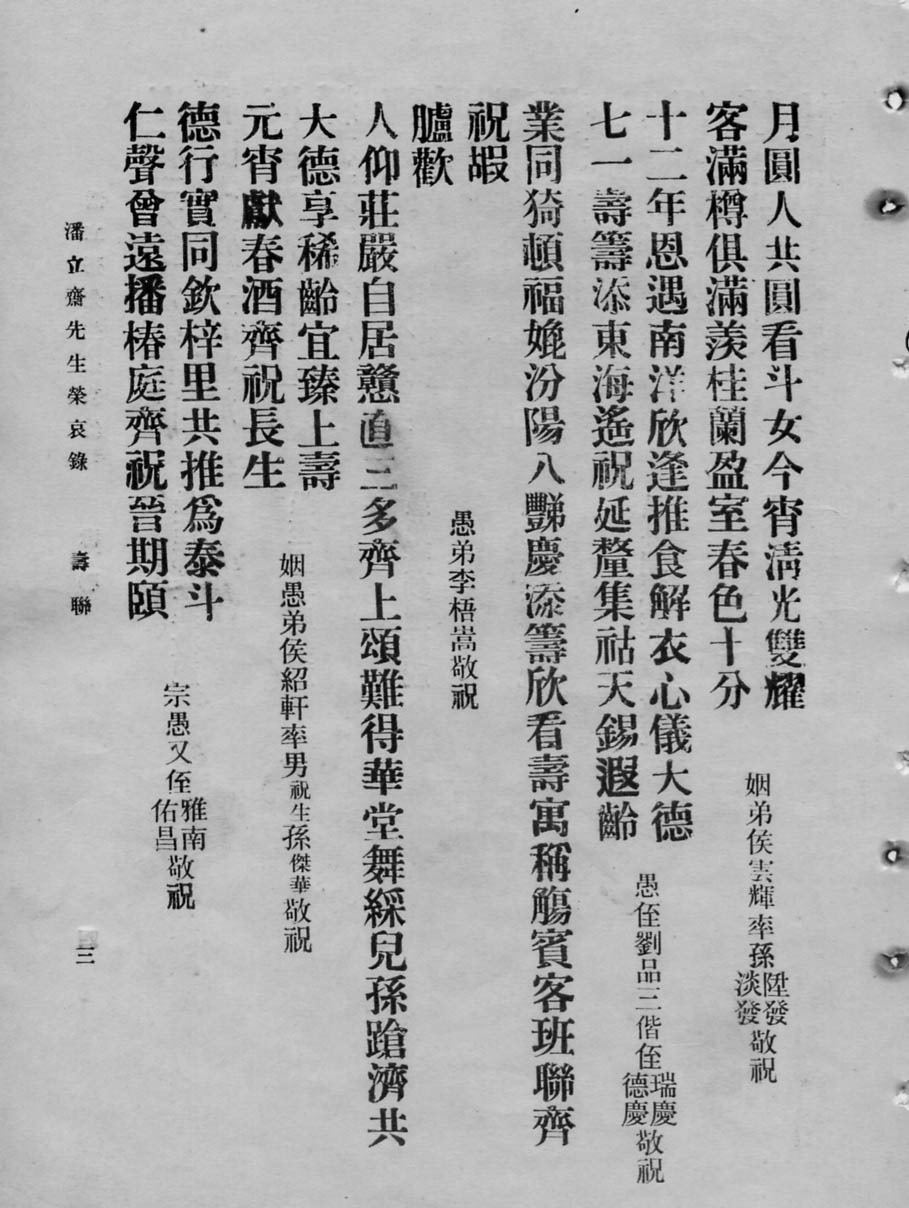 月圓人共圓看斗女今宵淸光雙耀
客滿樽俱滿羨桂蘭盈室春色十分
姻弟侯雲輝率孫陞發淡發敬祝
十二年恩遇南洋欣逢推食解衣心儀大德
七一壽籌添東海遙祝延釐集祜天錫遐齡
愚侄劉品三偕侄瑞慶德慶敬祝
業同猗頓福媲汾陽八豔慶添籌欣看壽寓稱觴賓客班聯齊
祝嘏
愚弟李梧嵩敬祝
臚歡
人仰莊嚴自居戇直三多齊上頌難得華堂舞綵兒孫蹌濟共
大德享稀齡宜臻上壽
元宵獻春酒齊祝長生
姻愚弟侯紹軒率男祝生孫傑華敬祝
德行實同欽梓里共推爲泰斗
仁聲曾遠播椿庭齊祝晉期頤
宗愚又侄雅南佑昌敬祝
潘立齋先生榮哀錄 壽聯 三